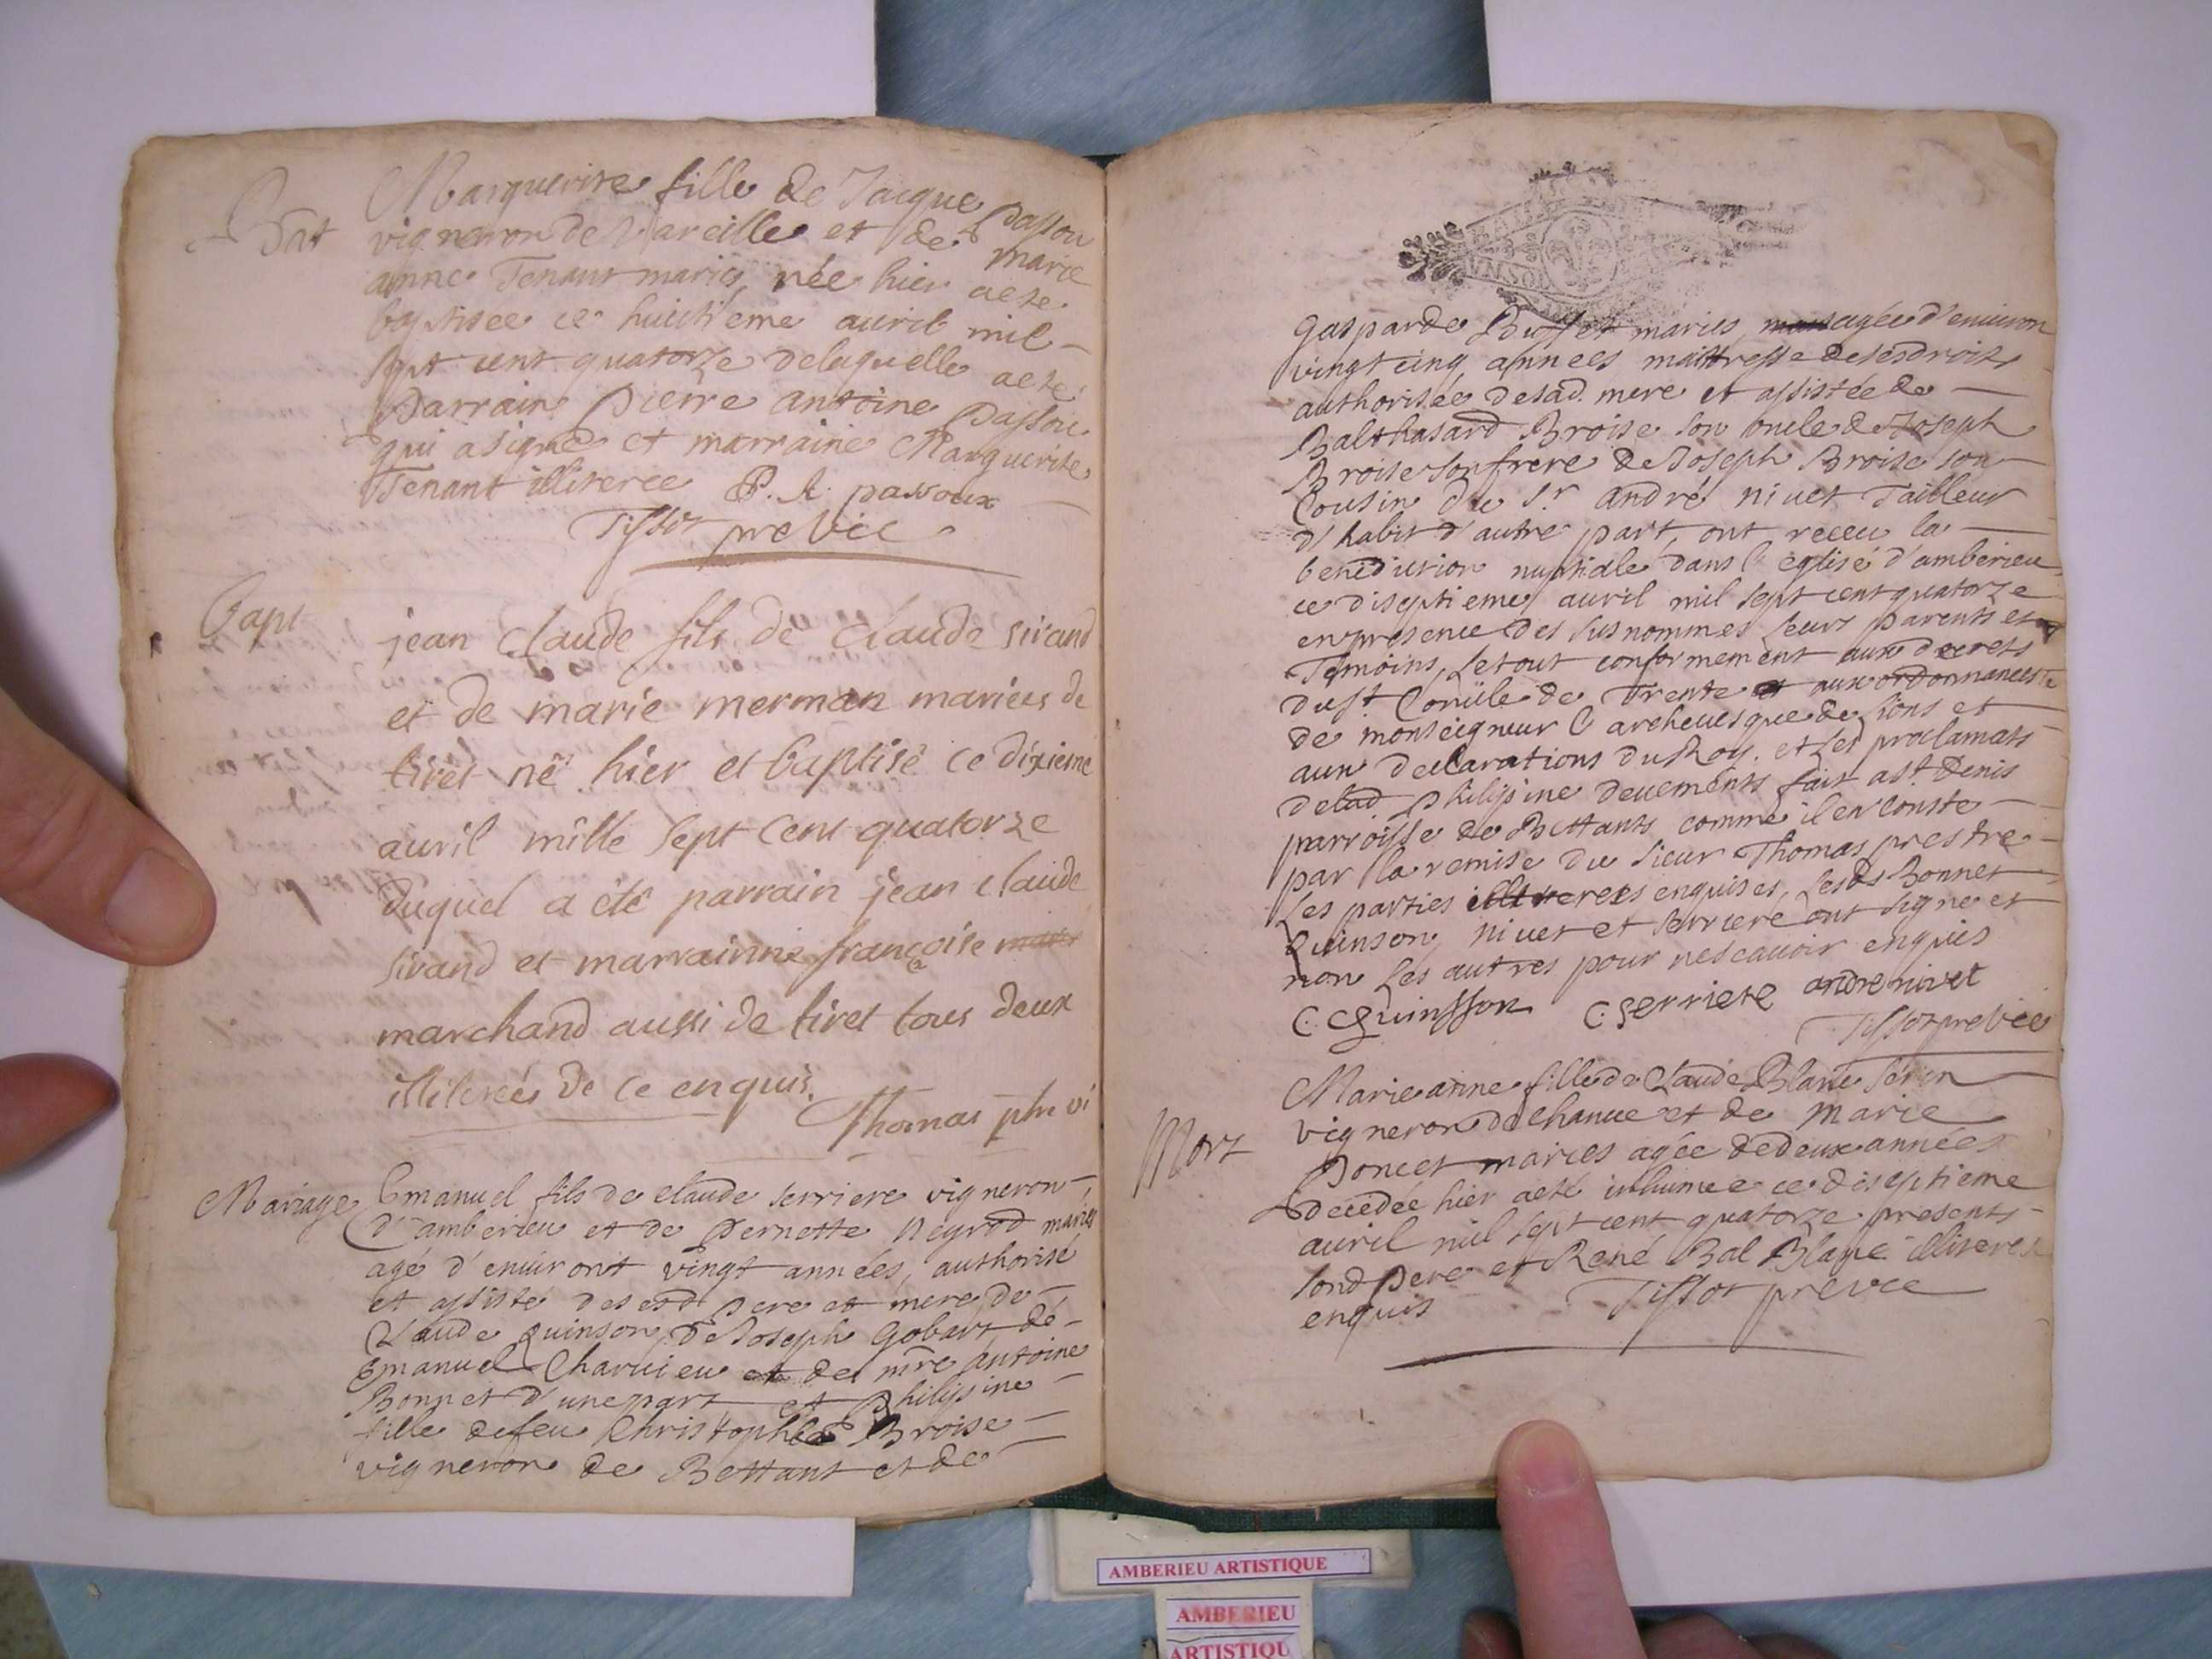 Bat
Marguerite fille de Jacque passou
vigneron de Vareille et de marie
anne Tenant maries née hier aeté
baptisee ce huictieme auril mil
sept cent quatorze delaquelle aeté
parrain pierre antoine passou
qui asigné et marraine Marguerite
Tenant illiteree P. A. passoux
Tissot pre vic
Bapt
jean Claude fils de Claude sirand
et de marie merman mariés de
tiret né hier et baptisé ce dixieme
auril mille sept cent quatorze
duquel a été parrain jean claude
sirand et marrainne françoise
marchand aussi de tiret tous deux
illiterés de ce enquis.
Thomas ptre vi
Mariage
Emanuel fils de claude serriere vigneron
d'amberieu et de pernette negrod maries
agé d'enuiront vingt années, authorisé
et assisté desesd pere et mere de
Claude quinson, de Joseph Gobart de
Emanuel Charuieu et de mre antoine
Bonnet d'unepart et philipine
fille defeu Christophle Broise
vigneron de Bettant et de
VN SOL
gasparde Buffet maries, agée d'enuiron
vingt cinq années maittresse desesdroits
authorisée desad. mere et assistée de
Balthasard Broise son oncle de Joseph
Broise son frere de Joseph Broise son
Cousin du Sr. andré niuet Tailleur
d'habit d'autre part, ont receu la
benediction nuptiale dans l'eglise d'amberieu
ce diseptieme auril mil sept cent quatorze
enpresence des susnommes leurs parents et
Temoins, letout conformement aux decrets
dust. Concile de Trente et aux ordonnances
de monseigneur l'archeuesque de lions et
aux declarations du Roy. et les proclamats
delad philipine deuements fait ast Denis
parroisse de Bettants comme il en conste
par la remise du sieur Thomas prestre
Les parties illiterees enquises, lesds Bonnet
quinson, niuet et serriere ont signe et
non les autres pour nescauoir enquis
C. Quinsson C. serriere andre nivet
Tissot pre vic
Mort
Marieanne fille de Claude Blanc
vigneron de Chanue et de marie
poncet maries agée dedeux années
decedée hier aeté inhumee ce diseptieme
auril mil sept cent quatorze presents
sond pere et René Bal Blanc illiteres
enquis Tissot pre vic
AMBERIEU ARTISTIQUE
AMBERIEU
ARTISTIQU